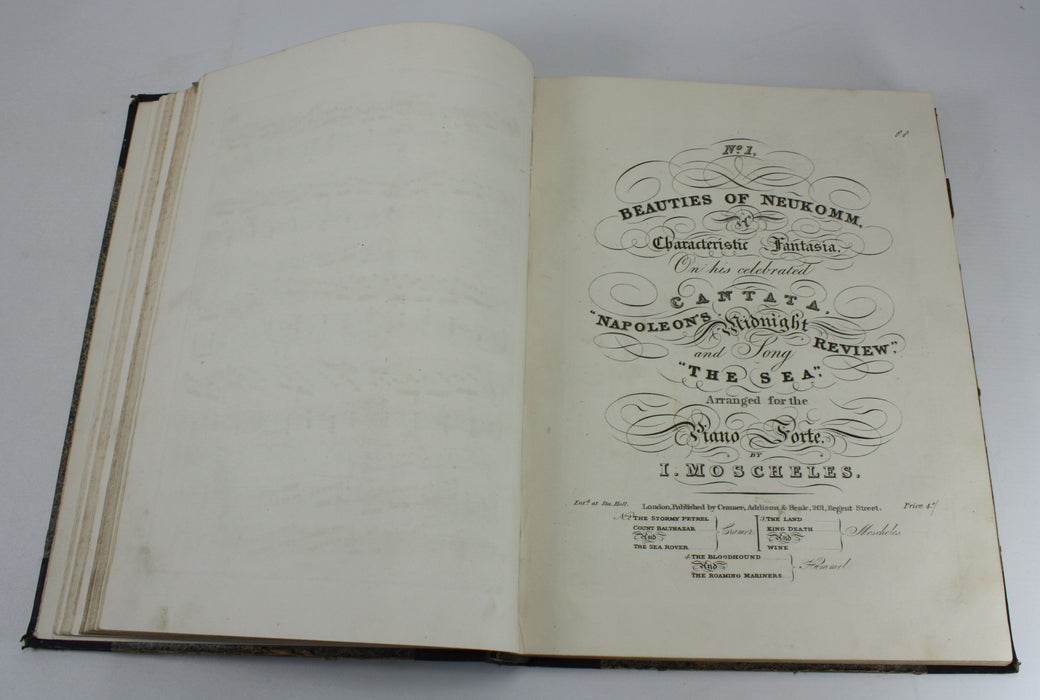 No. 1.
BEAUTIES OF NEUKOMM,
A
Characteristic Fantasia,
On his celebrated
CANTATA,
"NAPOLEON'S Midnight REVIEW",
and Song
"THE SEA",
Arranged for the
Piano Forte,
BY
I. MOSCHELES.
Entd. at Sta. Hall. London, Published by Cramer, Addison & Beale, 201, Regent Street. Price 4/
No. 2 THE STORMY PETREL
COUNT BALTHAZAR
And
THE SEA ROVER
Cramer
3 THE LAND
KING DEATH
And
WINE
Moscheles
4 THE BLOODHOUND
And
THE ROAMING MARINERS
Hummel